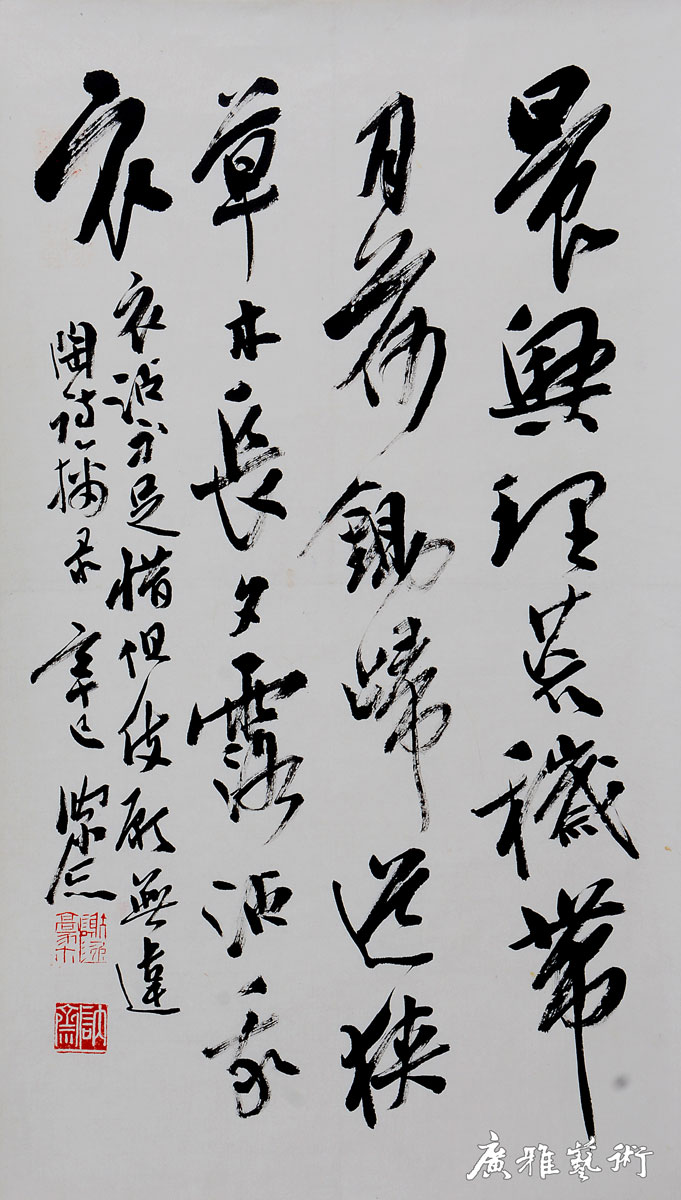 晨興理荒穢帶
月荷鋤歸道狹
草木長夕露沾我
衣 衣沾不足惜但使願無違
陶詩 录 辛巳
廣雅藝術